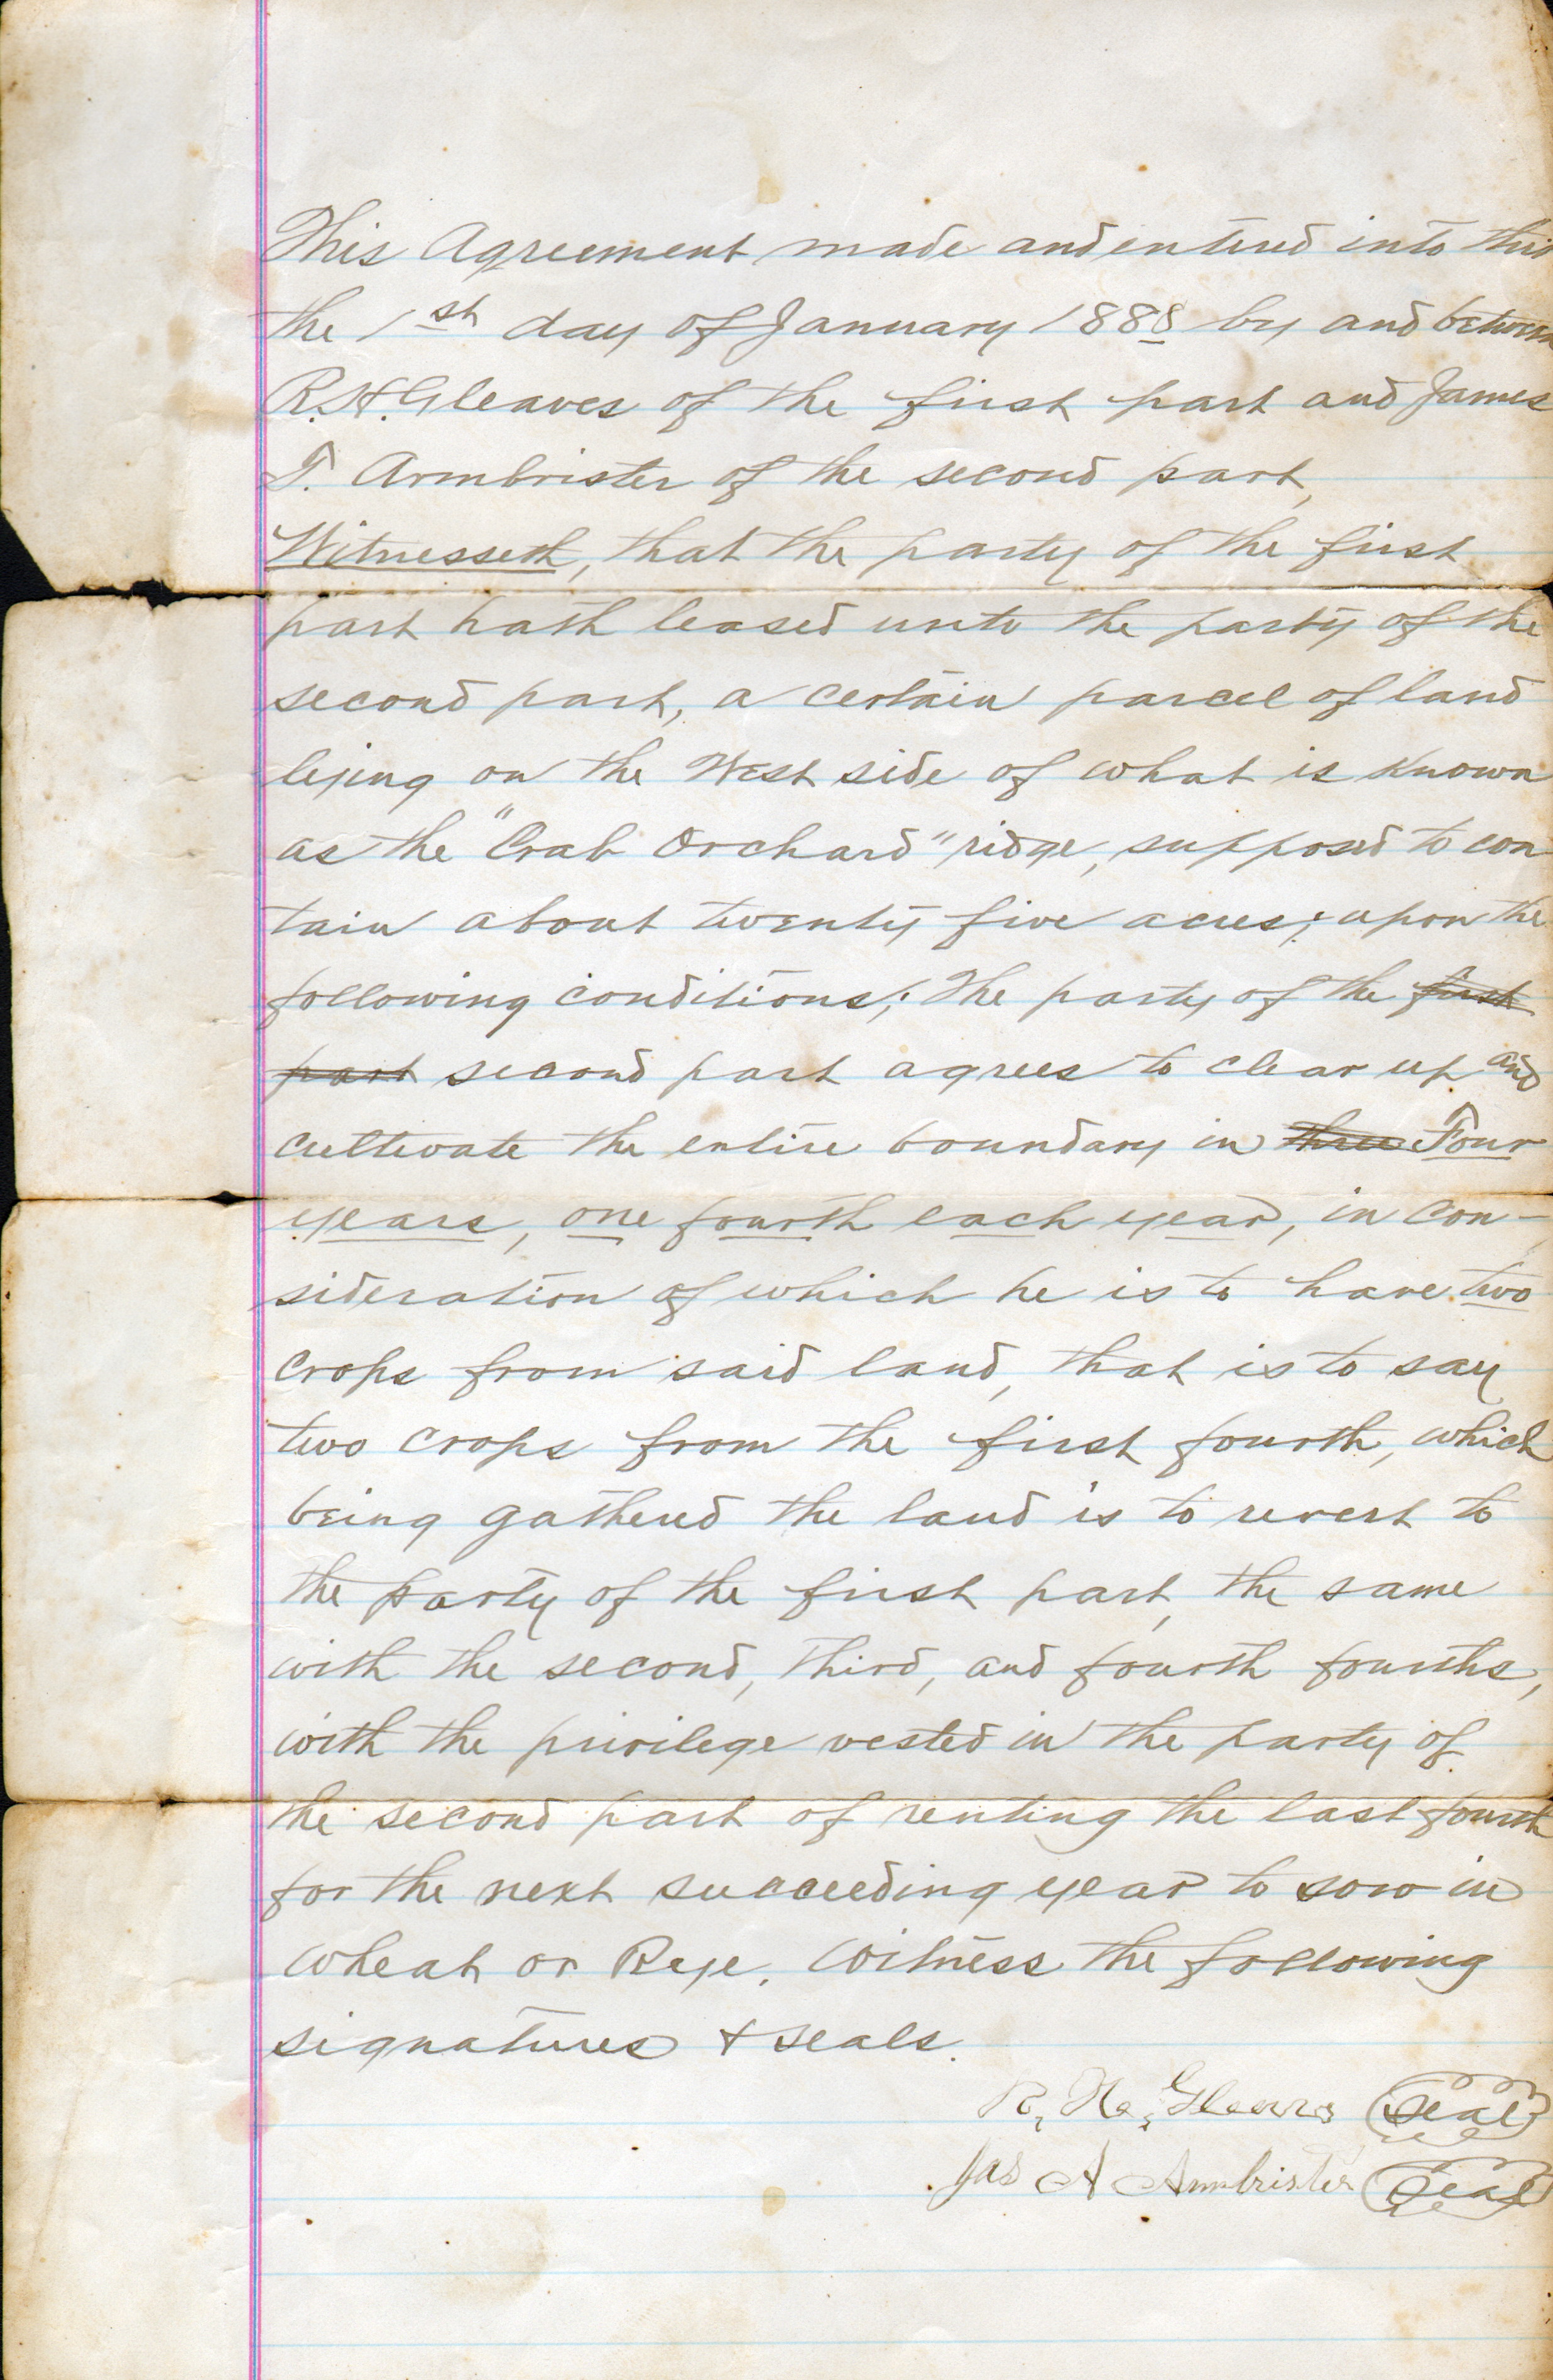 This Agreement made and entered into this
the 1st day of January 1888 by and between
R.H. Gleaves of the first part and James
T. Armbrister of the second part,
Witnesseth, that the party of the first
part hath leased unto the party of the
second part, a certain parcel of land
lying on the West side of what is known
as the "Crab Orchard" ridge, supposed to con
tain about twenty five acres; upon the
following conditions; The party of the first
part second part agrees to clear up and
cultivate the entire boundary in three Four
years, one fourth each year, in con-
sideration of which he is to have two
crops from said land, that is to say
two crops from the first fourth, which
being gathered the land is to revert to
the party of the first part, the same
with the second, third, and fourth fourths,
with the privilege vested in the party of
the second part of renting the last fourth
for the next succeeding year to sow in
wheat or Rye. Witness the following
signatures & seals.
R. H. Gleaves Seal
Jas A Armbrister Seal